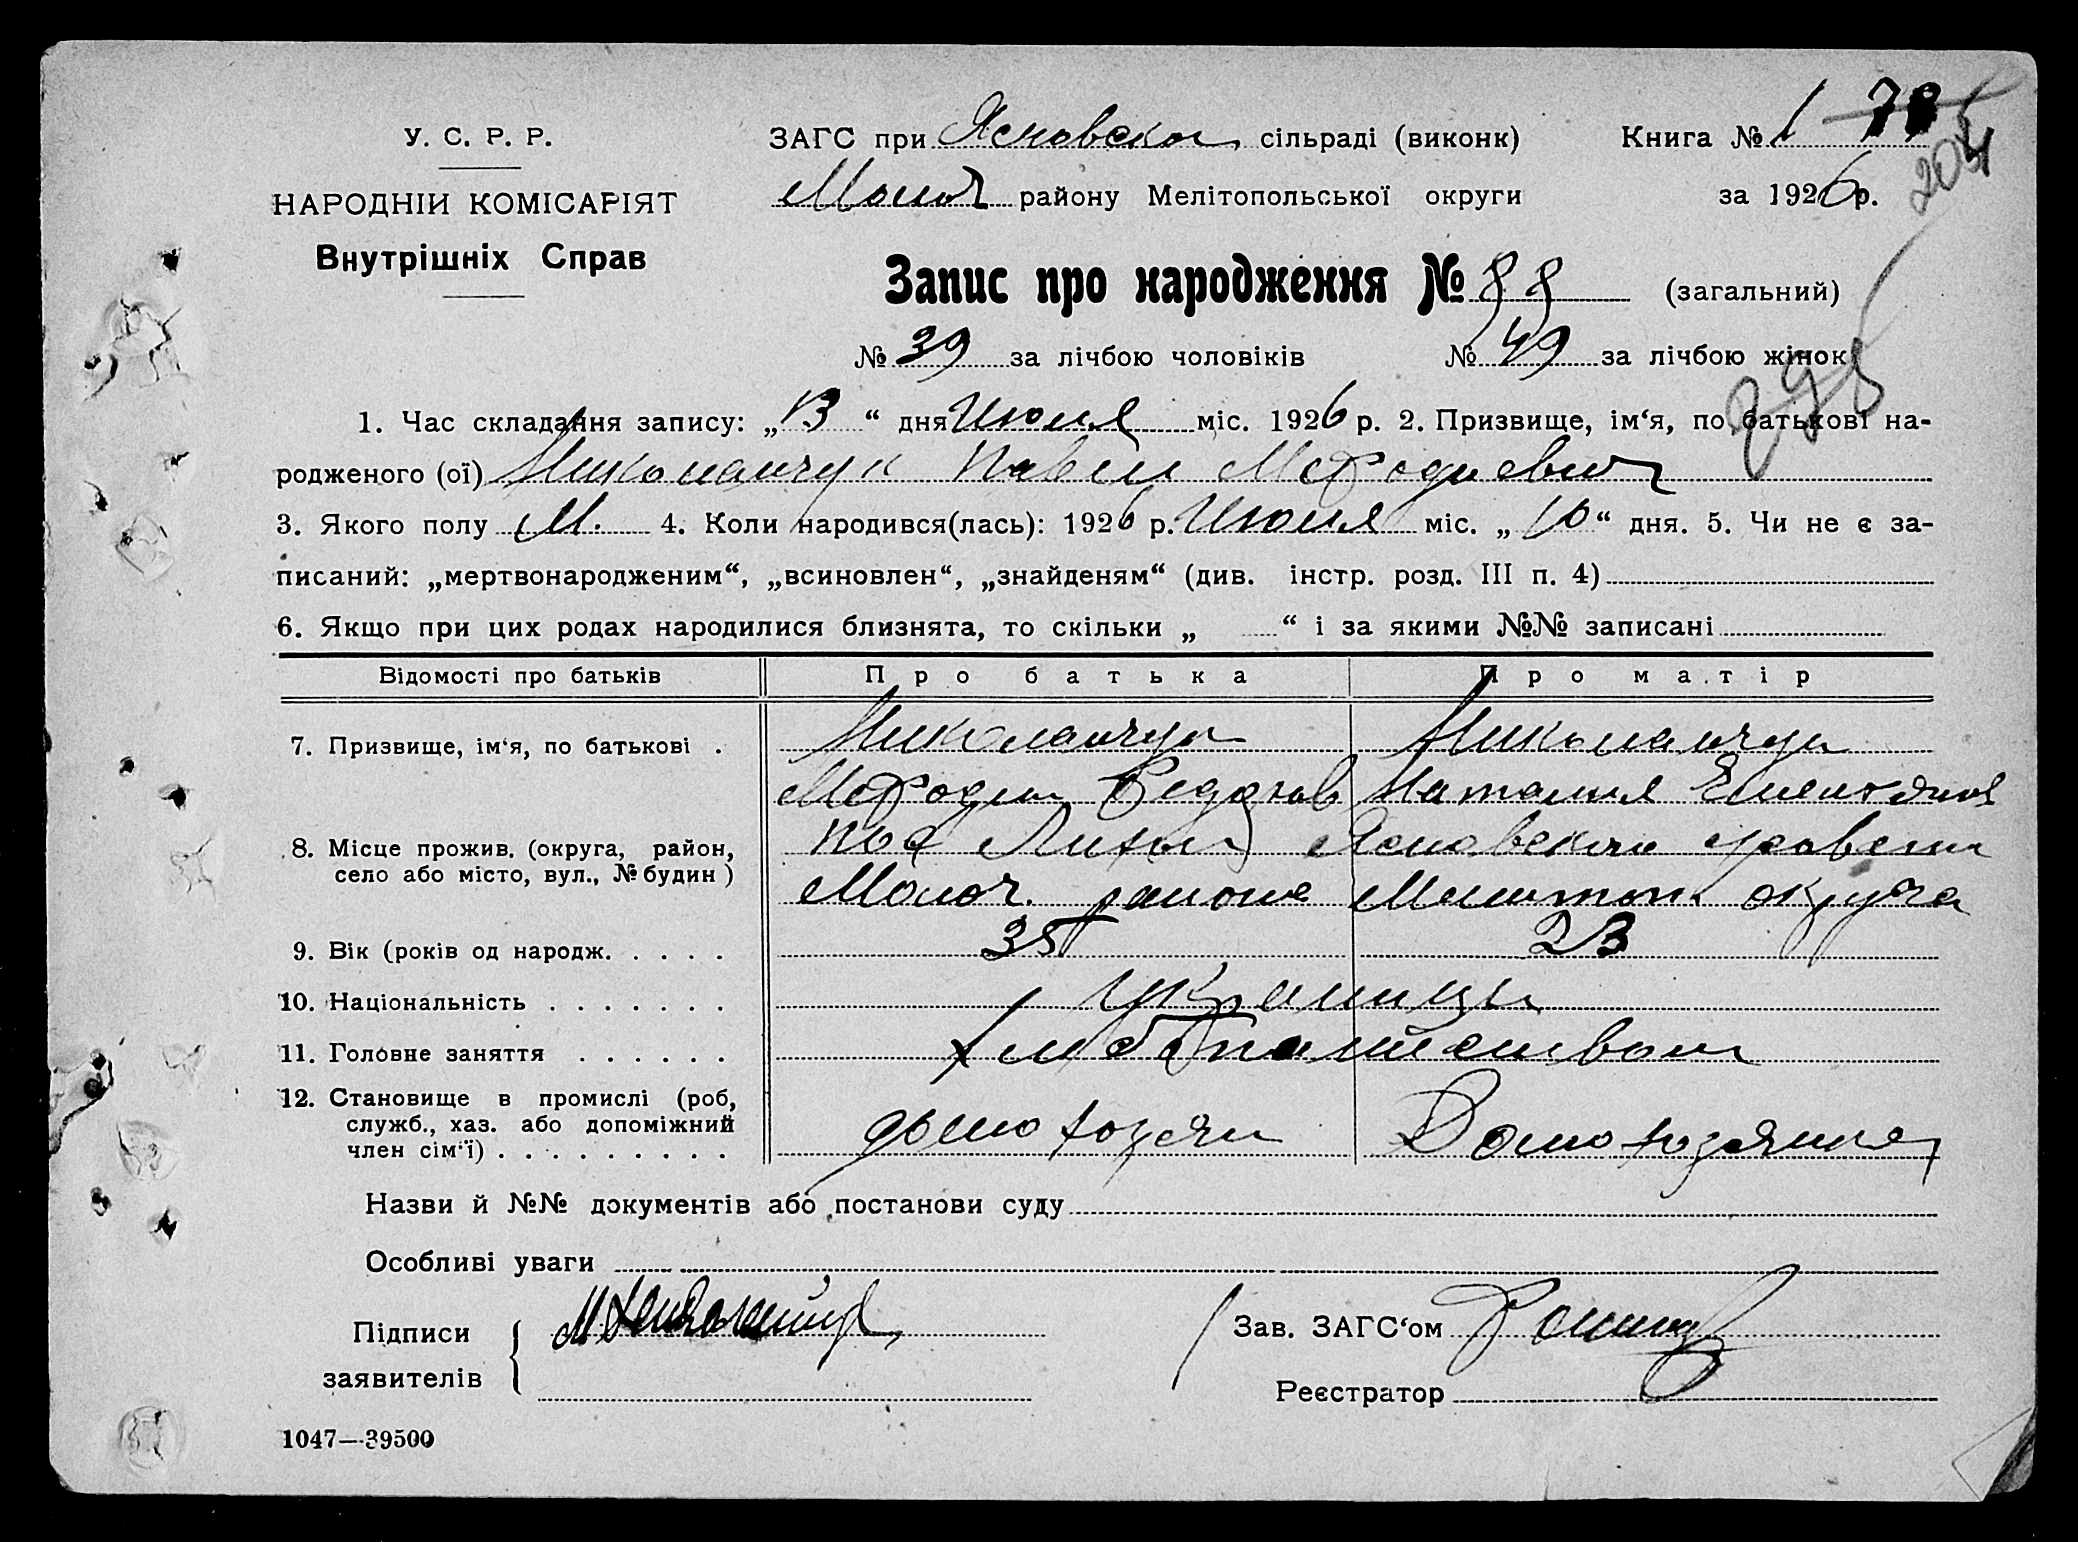 У. С. Р. Р.
НАРОДНІЙ КОМІСАРІЯТ
Внутрішніх Справ
ЗАГС при Ясновском сільраді (виконк)
Молоч району Мелітопольської округи
Книга № 1
за 1926 р.
205
Запис про народження № 88 (загальний)
№ 39 за лічбою чоловіків № 49 за лічбою жінок
295
1. Час складання запису: „13“ дня Июля міс. 1926 р. 2. Призвище, ім‘я, по батькові на-
родженого (ої) Николайчук Павел Мефодиевич
3. Якого полу М. 4. Коли народився(лась): 1926 р. Июля міс. „10“ дня. 5. Чи не є за-
писаний: „мертвонародженим“, „всиновлен“, „знайденям“ (див. інстр. розд. III п. 4)
6. Якщо при цих родах народилися близнята, то скільки „ “ і за якими №№ записані
Відомості про батьків Про батька Про матір
7. Призвище, ім‘я, по батькові . Николайчук Николайчук
Мефодий Федоров Наталия
8. Місце прожив. (округа, район, пос Ясновский
село або місто, вул., № будин) Молоч. района Мелитоп. округа
9. Вік (років од народж. . . . . 35 23
10. Національність . . . . . . . украинцы
11. Головне заняття . . . . . . хлебопашеством
12. Становище в промислі (роб,
служб., хаз. або допоміжний домохозяин Домохозяина
член сім‘ї) . . . . . . . . .
Назви й №№ документів або постанови суду
Особливі уваги
Підписи
заявителів
Зав. ЗАГС‘ом
Реєстратор
1047—39500